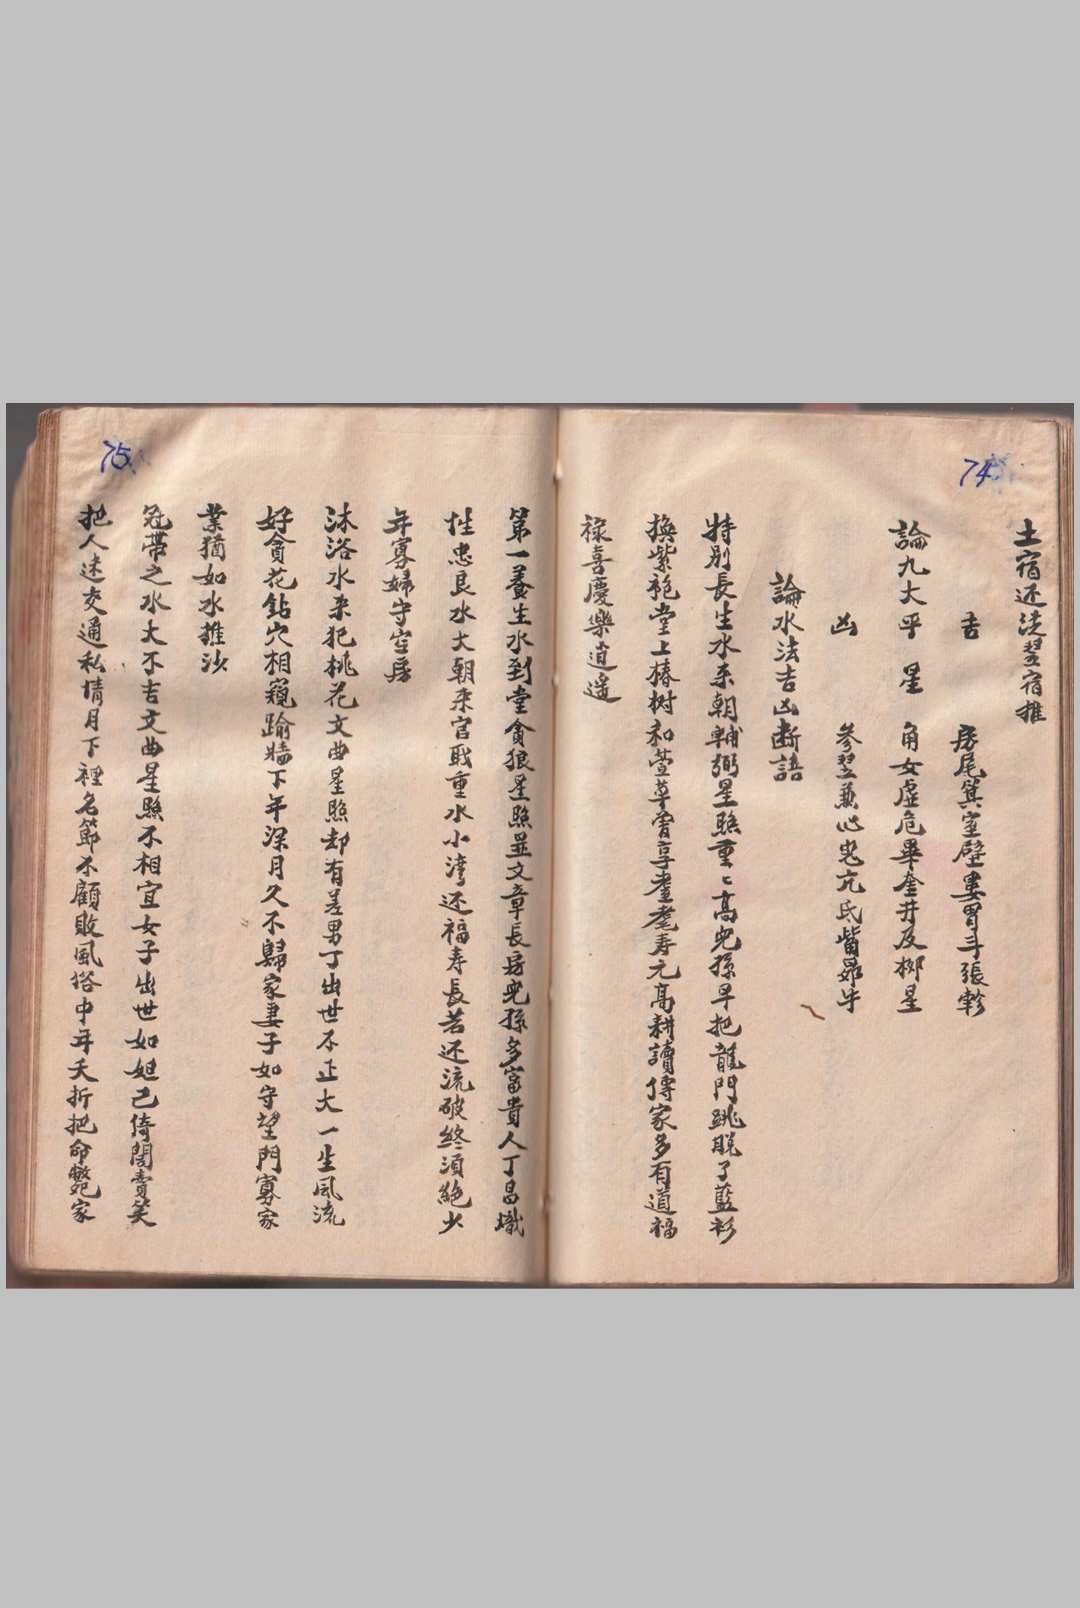 74
土宿还從翌宿推
吉 房尾箕室壁婁胃斗張軫
論九大平星 角女虛危畢奎井反柳星
凶 參翌兼心鬼亢氐觜昴牛
論水法吉凶断語
特别長生水来朝輔弼星照重々高兒孫早把龍門跳脫了藍衫
換紫袍堂上椿树和萱草奮享耋耄寿元高耕讀傳家多有道福
禄喜慶樂逍遥
75
第一養生水到堂貪狼星照並文章長房兒孫多富貴人丁昌熾
性忠良水大朝来官职重水小湾还福寿長若还流破終須絶少
年寡婦守空房
沐浴水来犯桃花文曲星照却有差男丁出世不正大一生風流
好貪花鉆穴相窺踰墻下年深月久不歸家妻子如守望門寡家
業猶如水推沙
冠帶之水大不吉文曲星照不相宜女子出世如妲己倚閣賣笑
把人迷交通私情月下裡名節不顧敗風俗中年夭折把命斃家